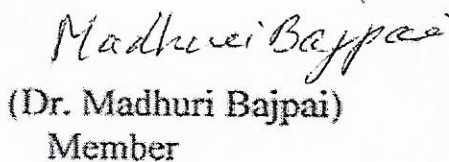 Madhuri Bajpai
(Dr. Madhuri Bajpai)
Member